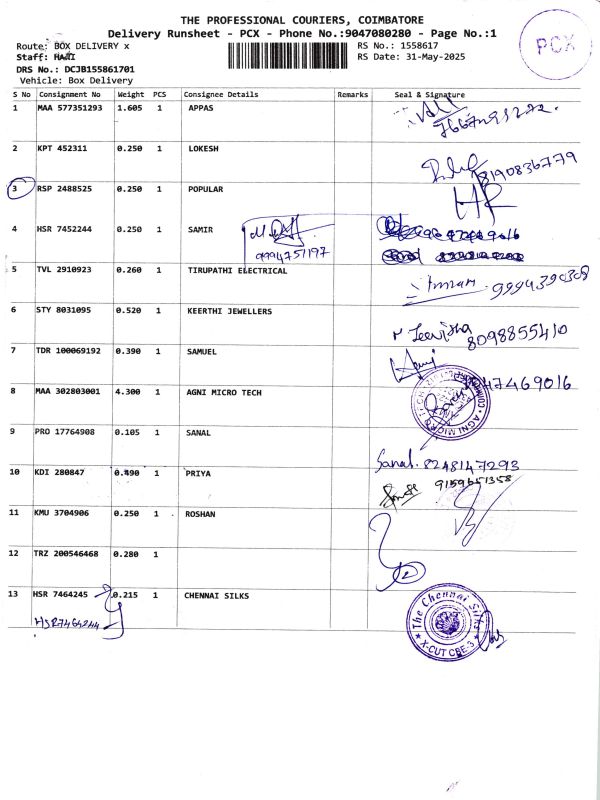 THE PROFESSIONAL COURIERS, COIMBATORE
Delivery Runsheet - PCX - Phone No.:9047080280 - Page No.:1
PCX
Route: BOX DELIVERY x
RS No.: 1558617
Staff:
RS Date: 31-May-2025
DRS No.: DCJB155861701
Vehicle: Box Delivery
S No Consignment No Weight PCS Consignee Details Remarks Seal & Signature
1 MAA 577351293 1.605 1 APPAS
2 KPT 452311 0.250 1 LOKESH
8190836779
3 RSP 2488525 0.250 1 POPULAR
4 HSR 7452244 0.250 1 SAMIR
9994751197
5 TVL 2910923 0.260 1 TIRUPATHI ELECTRICAL
9994390308
6 STY 8031095 0.520 1 KEERTHI JEWELLERS
8098855410
7 TDR 100069192 0.390 1 SAMUEL
8 MAA 302803001 4.300 1 AGNI MICRO TECH
47469016
9 PRO 17764908 0.105 1 SANAL
Sanal. 8248147293
10 KDI 280847 0.490 1 PRIYA
9159651358
11 KMU 3704906 0.250 1 ROSHAN
12 TRZ 200546468 0.280 1
13 HSR 7464245 0.215 1 CHENNAI SILKS
HSR7464244
The Chennai Silks
X-CUT CBE-3